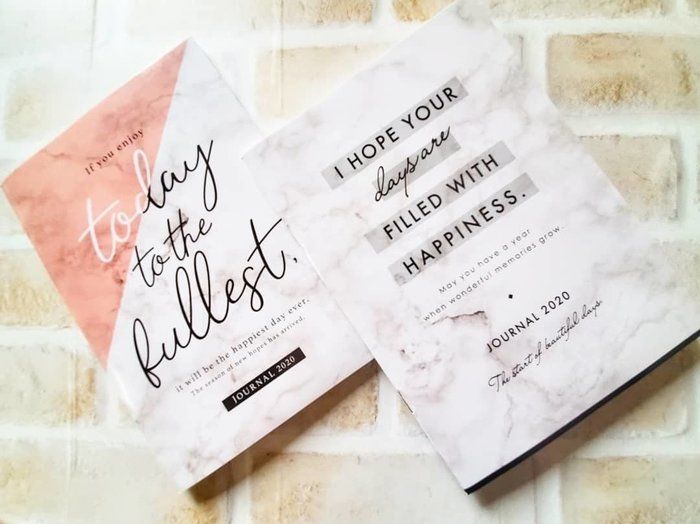 If you enjoy
today
to the
fullest.
it will be the happiest day ever.
The season of new hopes has arrived.
JOURNAL 2020
I HOPE YOUR
days are
FILLED WITH
HAPPINESS.
May you have a year
when wonderful memories grow.
JOURNAL 2020
The start of beautiful days.